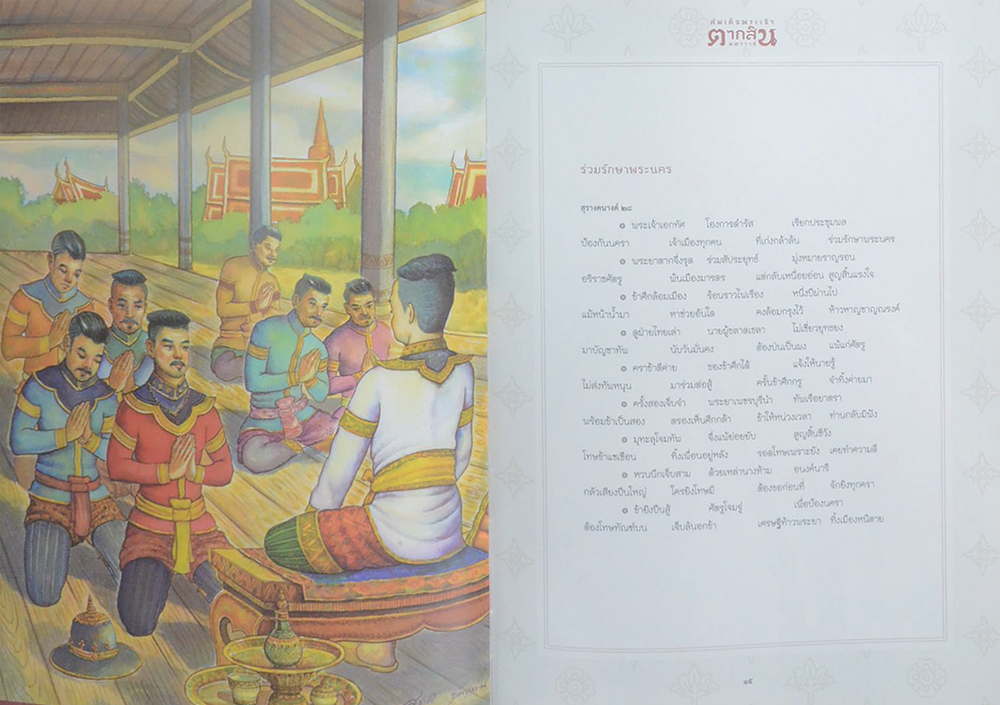 สมเด็จพระเจ้า
ตากสิน
มหาราช
ร่วมรักษาพระนคร
สุรางคนางค์ ๒๘
๏ พระเจ้าเอกทัศ โองการดำรัส เรียกประชุมพล
ป้องกันนครา เจ้าเมืองทุกคน ที่เก่งกล้าล้น ร่วมรักษาพระนคร
๏ พระยาตากจึงรุด ร่วมสัประยุทธ์ มุ่งหมายราญรอน
อริราชศัตรู พันเมืองมารดร แต่กลับเหนื่อยอ่อน สูญสิ้นแรงใจ
๏ ข้าศึกล้อมเมือง ร้อนราวไฟเรือง หนึ่งปีผ่านไป
แม้หน้าน้ำมา หาช่วยอันใด คงล้อมกรุงไว้ ห้าวหาญชาญณรงค์
๏ ดูฝ่ายไทยเล่า นายผู้ขลาดเขลา ไม่เชี่ยวยุทธยง
มาบัญชาทัน นับวันมั่นคง ต้องป่นเป็นผง แพ้แก่ศัตรู
๏ คราข้าตีค่าย ของข้าศึกได้ แจ้งให้นายรู้
ไม่ส่งทัพหนุน มาร่วมต่อสู้ ครั้นข้าศึกกรู จำทิ้งค่ายมา
๏ ครั้งสองเจ็บจำ พระยาเพชรบุรีนำ ทัพเรือยาตรา
พร้อมข้าเป็นสอง ตรองเห็นศึกกล้า ข้าให้หน่วงเวลา ท่านกลับมิฟัง
๏ มุทะลุโจมทัน จึงแพ้ย่อยยับ สูญสิ้นชีวัง
โทษข้าแชเชือน ทิ้งเพื่อนอยู่หลัง รอดโทษเพราะยัง เคยทำความดี
๏ หวนนึกเจ็บสาม ด้วยเหล่านางห้าม อนงค์นารี
กลัวเสียงปืนใหญ่ ใครยิงโทษมี ต้องขอก่อนที่ จักยิงทุกครา
๏ ข้ายิงปืนสู้ ศัตรูโจมจู่ เพื่อป้องนครา
ต้องโทษทัณฑ์บน เจ็บล้นอกข้า เศรษฐีท้าวพระยา ทิ้งเมืองหนีตาย
๑๕